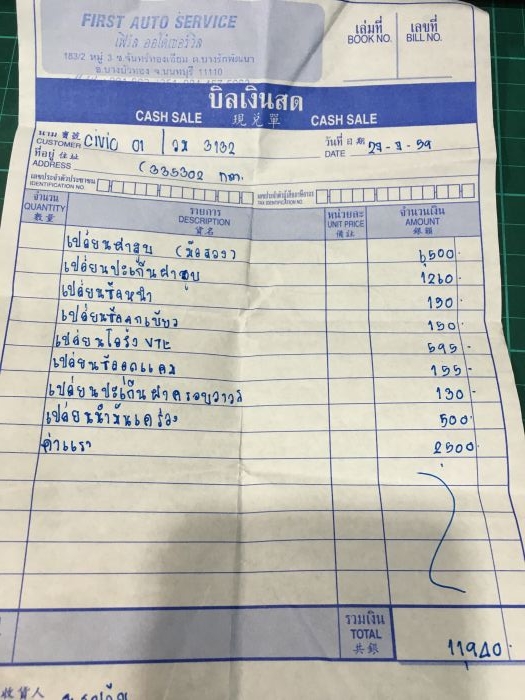 FIRST AUTO SERVICE
เฟิร์ส ออโต้เซอร์วิส
183/2 หมู่ 3 ซ.จันทร์ทองเอี่ยม ถ.บางรักพัฒนา
อ.บางบัวทอง จ.นนทบุรี 11110
เล่มที่ เลขที่
BOOK NO. BILL NO.
บิลเงินสด
CASH SALE 現兌單 CASH SALE
นาม 寶號
CUSTOMER civic 01 3132
วันที่ 日期
DATE
ที่อยู่ 住址
ADDRESS (335302 กต.
เลขประจำตัวประชาชน
IDENTIFICATION NO.
เลขประจำตัวผู้เสียภาษีอากร
TAX IDENTIFICATION NO.
จำนวน รายการ หน่วยละ จำนวนเงิน
QUANTITY DESCRIPTION UNIT PRICE AMOUNT
數量 貨名 備註 銀額
เปลี่ยนฝาสูบ (มือสอง) 6500
เปลี่ยนปะเก็นฝาสูบ 1260
เปลี่ยนซีลหน้า 190
เปลี่ยนซีล 150
เปลี่ยนโอริง VTE 595 -
เปลี่ยนซีล 155 -
เปลี่ยนปะเก็นฝาครอบวาวล์ 130 -
เปลี่ยนน้ำมันเครื่อง 500
ค่าแรง 2500
รวมเงิน
TOTAL 11940
共銀
收貨人